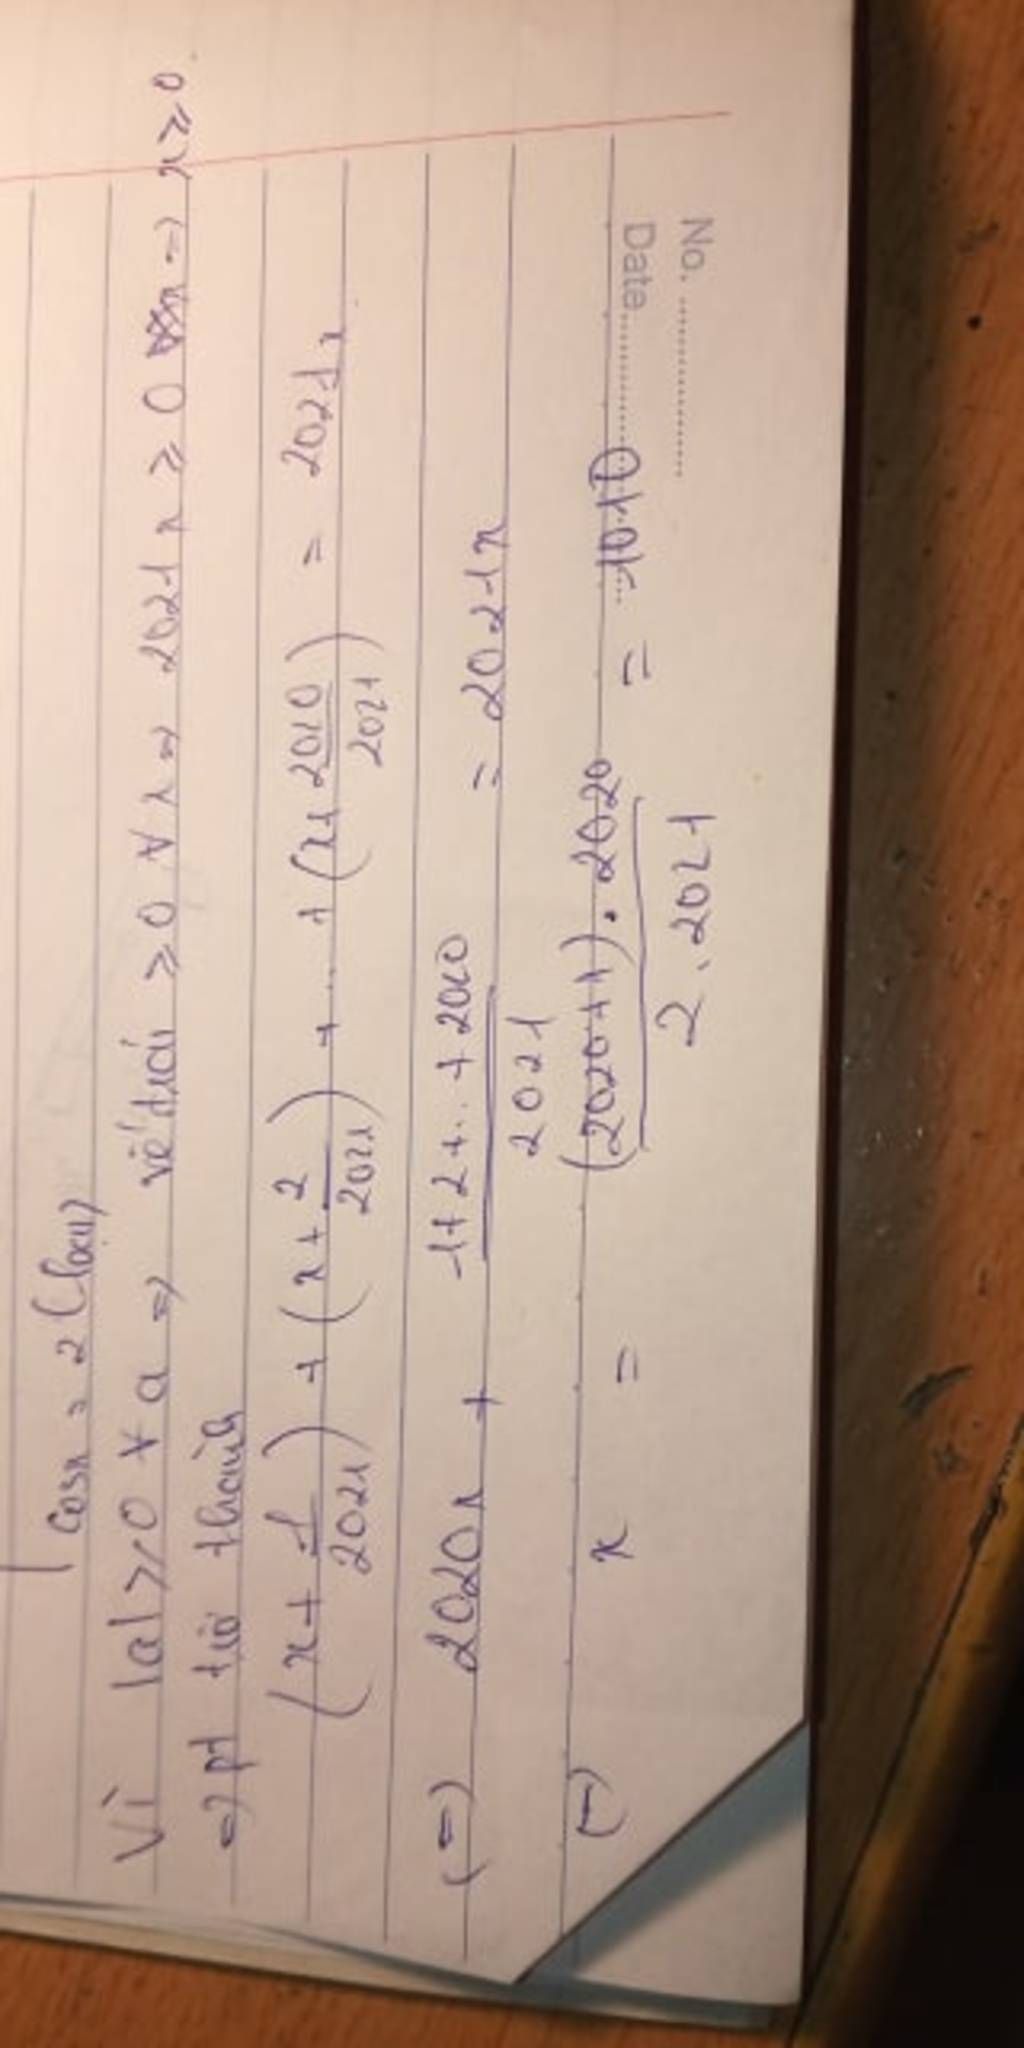 cosx = 2 (loại)
Vì |a| ≥ 0 ∀ a => vế trái ≥ 0 ∀ x => 2021 x ≥ 0 => x ≥ 0.
=> pt trở thành
(x + 1/2021) + (x + 2/2021) + ... + (x + 2020/2021) = 2021x
(=) 2020x + (1 + 2 + ... + 2020)/2021 = 2021x
(=) x = ((2020 + 1) . 2020)/(2 . 2021) = 1010
No. ....................
Date ....................